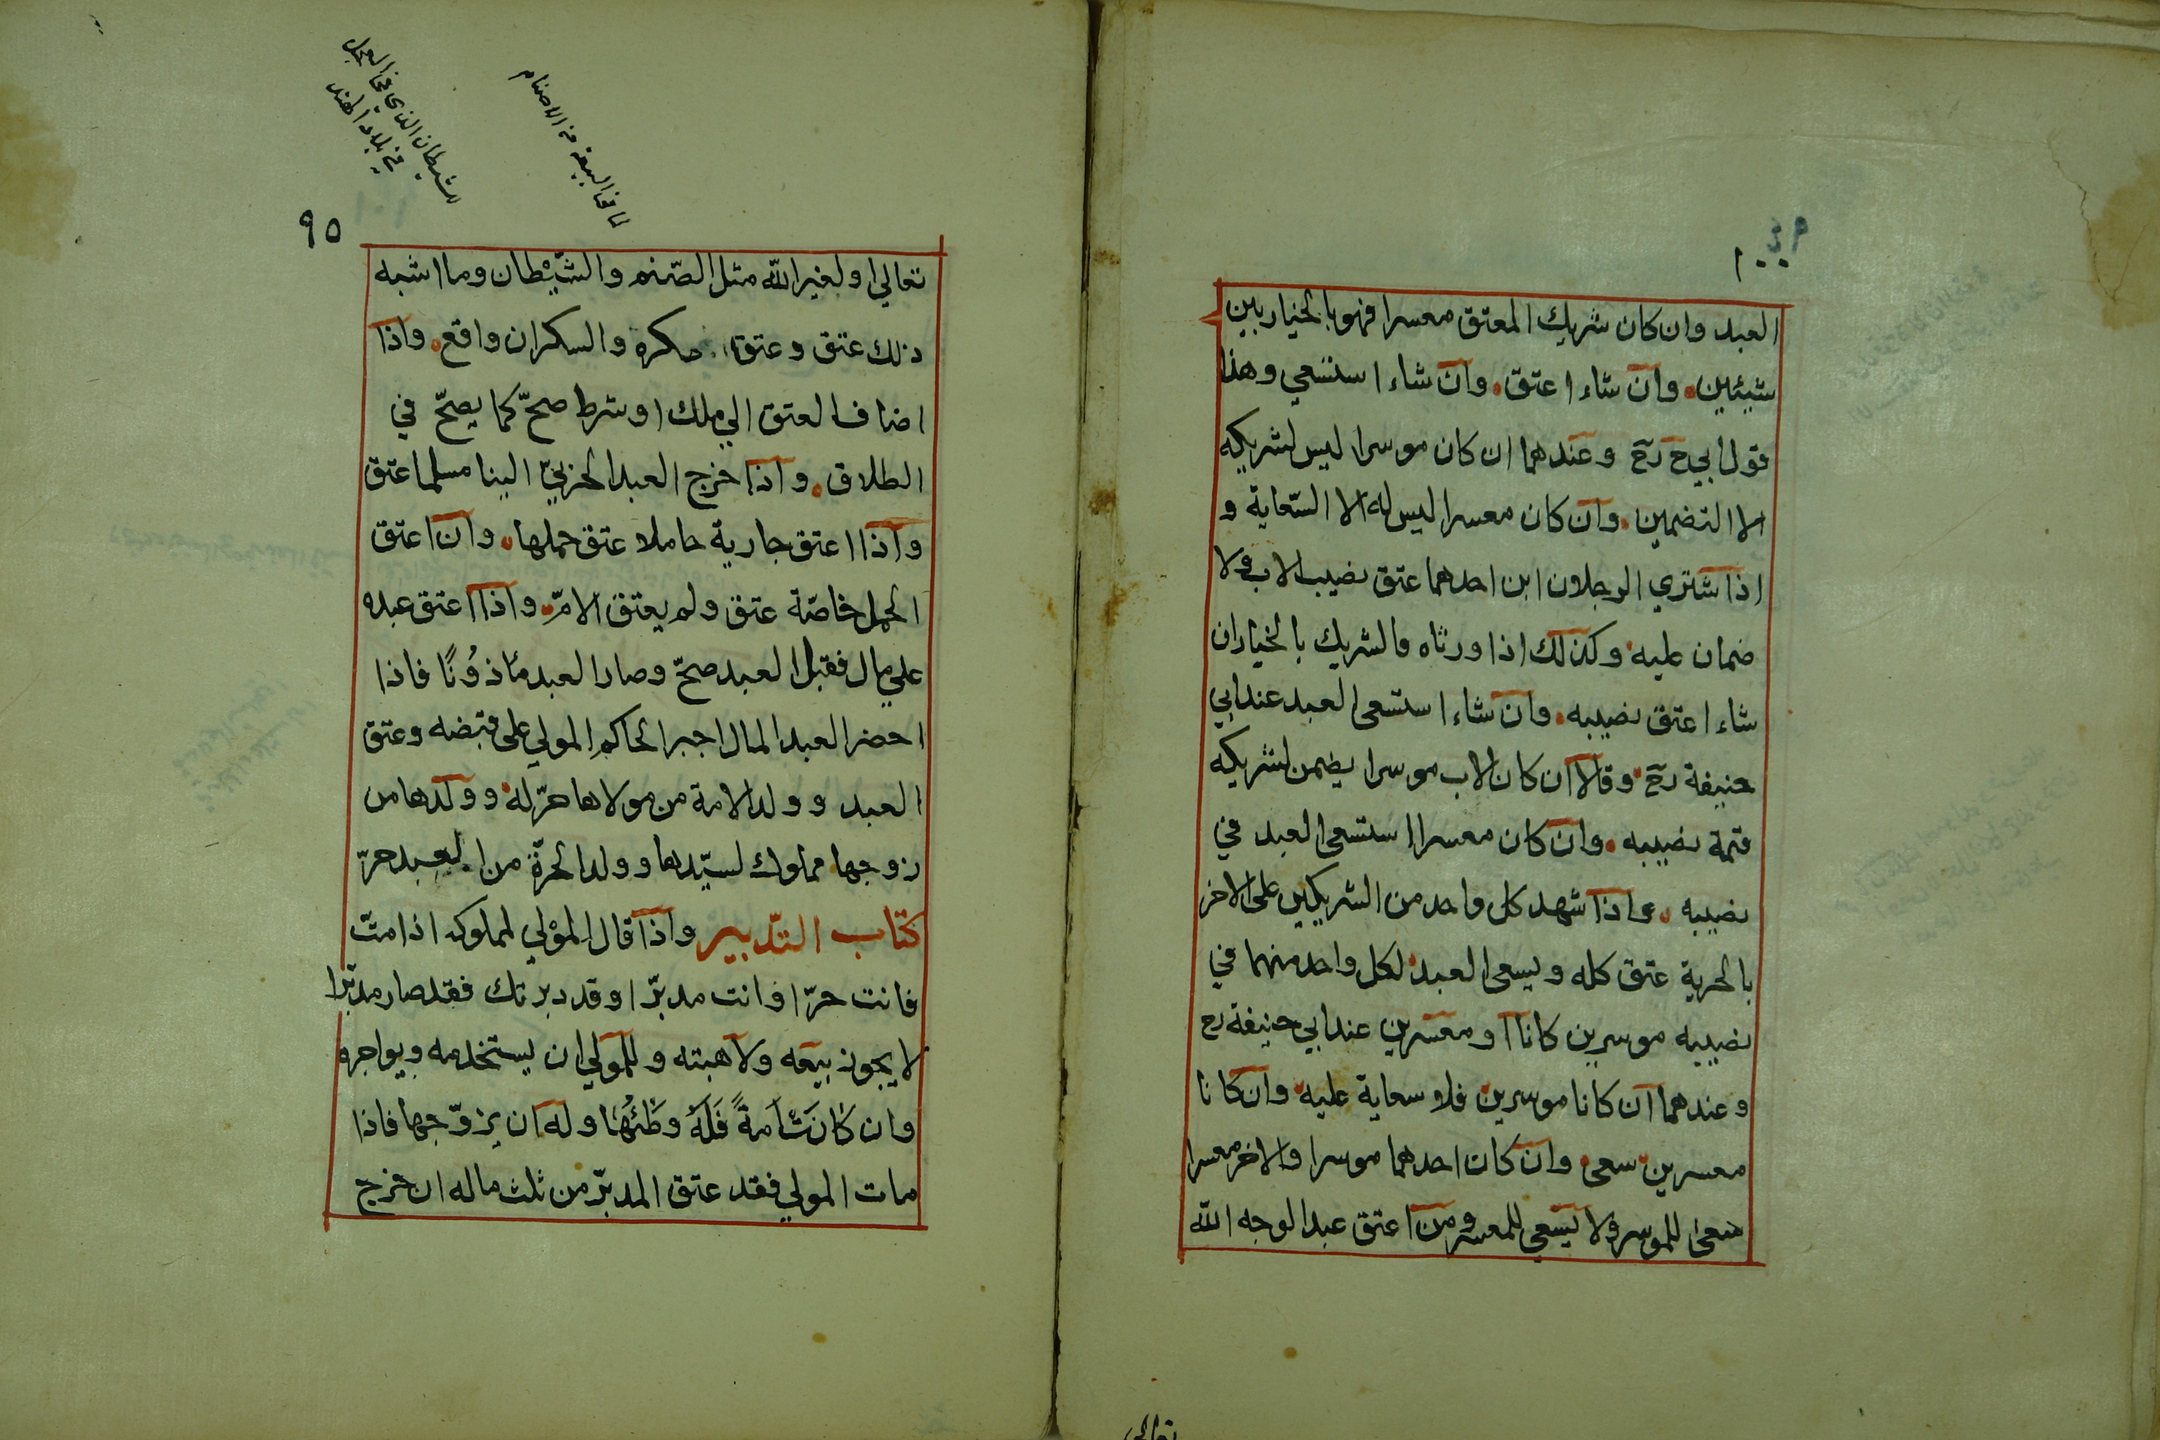 ١٠٠
العبد وان كان شريك المعتق معسرا فهو بالخيار بين
شيئين وان شاء اعتق وان شاء استسعي وهذا
قول ابي ح رح وعندهما ان كان موسرا ليس لشريكه
الا التضمين وان كان معسرا ليس له الا السّعاية و
اذا شتري الرجلان ابن احدهما عتق نصيب الاب ولا
ضمان عليه وكذلك اذا ورثاه فالشريك بالخيار ان
شاء اعتق نصيبه وان شاء استسعى العبد عند ابي
حنيفة رح وقالا ان كان الاب موسرا يضمن لشريكه
قيمة نصيبه وان كان معسرا استسعى العبد في
نصيبه واذا شهد كل واحد من الشريكين على الاخر
بالحرية عتق كله ويسعى العبد لكل واحد منهما في
نصيبه موسرين كانا او معسرين عند ابي حنيفة رح
وعندهما ان كانا موسرين فلا سعاية عليه وان كانا
معسرين سعى وان كان احدهما موسرا والاخر معسرا
سعى للموسر ولا يسعى للمعسر ومن اعتق عبدا لوجه الله
تعالى
٩٥
تعالي او لغير الله مثل الصّنم والشّيْطان وما اشبه
ذلك عتق وعتق مكره والسكران واقع واذا
اضاف العتق الي ملك او شرط صحّ كما يصحّ في
الطلاق واذا خرج العبد الحربيّ الينا مسلما عتق
واذا اعتق جارية حاملا عتق حملها وان اعتق
الحمل خاصّة عتق ولم يعتق الامّ واذا اعتق عبده
علي مال فقبل العبد صحّ وصار العبد مأذوُنًا فاذا
احضر العبد المال اجبر الحاكم المولي على قبضه وعتق
العبد وولد الامة من مولاها حرّ له وولدها من
زوجها مملوك لسيّدها وولد الحرّة من العبد حرّ
كتاب التّدبير واذا قال الموْلي لمملوكه اذا متّ
فانت حرّ او انت مدبّر او قد دبرتك فقد صار مدبّرا
لا يجوز بيعه ولا هبته وللمولي ان يستخدمه ويواجره
وان كانَتْ اَمةً فَلَهُ وَطْئُهَا وله ان يزوّجها فاذا
مات المولي فقد عتق المدبّر من ثلث ماله ان خرج